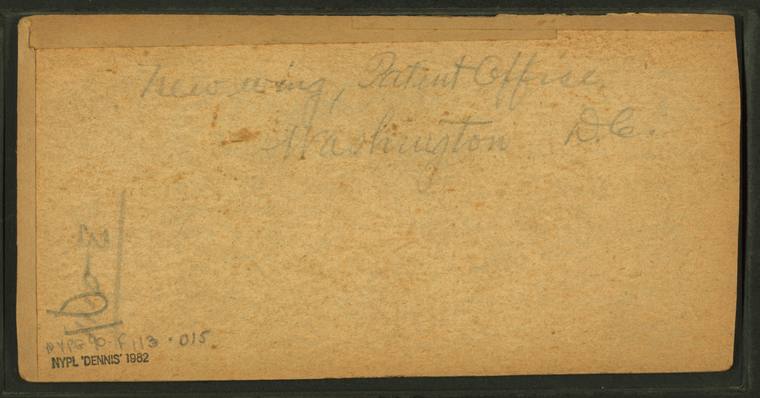 New wing, Patent Office,
Washington D.C.
NYPG90-F113.015
NYPL 'DENNIS' 1982